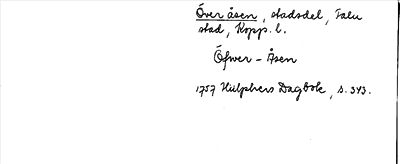 Över åsen, stadsdel, Falu
stad, Kopp. l.
Öfwer-Åsen
1757 Hülphers Dagbok, s. 343.